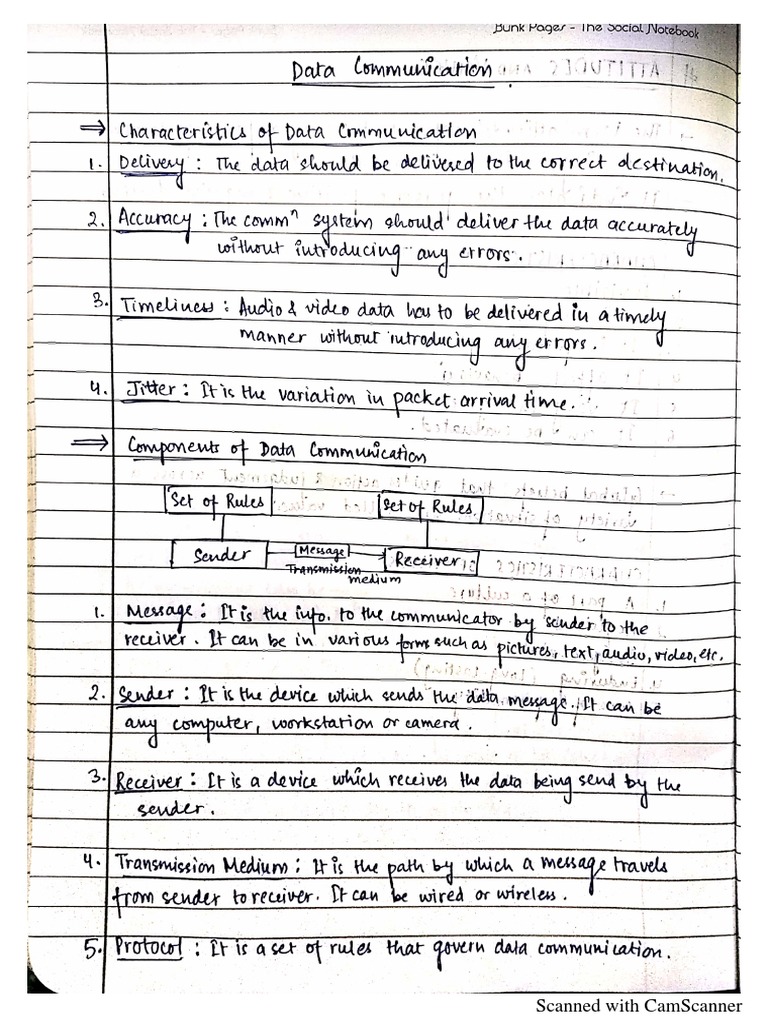 Bunk Pages - The Social Notebook
Data Communication
⇒ Characteristics of Data Communication
1. Delivery : The data should be delivered to the correct destination.
2. Accuracy : The commⁿ system should deliver the data accurately
without introducing any errors.
3. Timeliness : Audio & video data has to be delivered in a timely
manner without introducing any errors.
4. Jitter : It is the variation in packet arrival time.
⇒ Components of Data Communication
Set of Rules Set of Rules
Sender Message Receiver
Transmission
medium
1. Message : It is the info. to the communicator by sender to the
receiver. It can be in various forms such as pictures, text, audio, video, etc.
2. Sender : It is the device which sends the data message. It can be
any computer, workstation or camera.
3. Receiver : It is a device which receives the data being send by the
sender.
4. Transmission Medium : It is the path by which a message travels
from sender to receiver. It can be wired or wireless.
5. Protocol : It is a set of rules that govern data communication.
Scanned with CamScanner